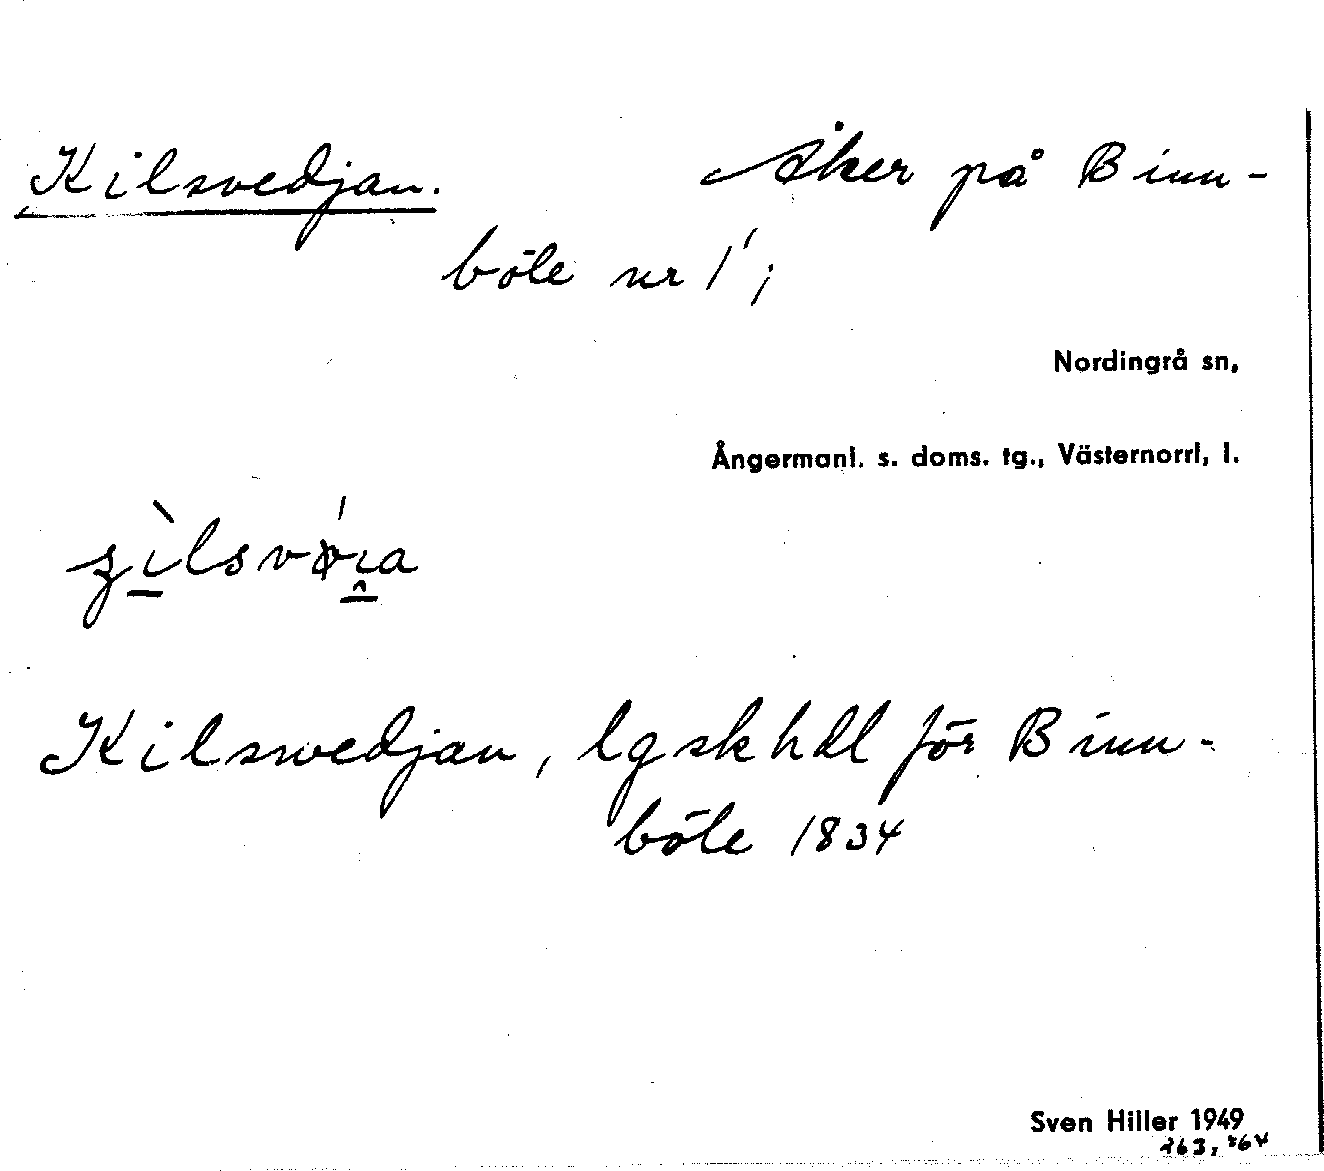 Kilsvedjan. Åker på Binn-
böle nr 1¹;
Nordingrå sn,
Ångermanl. s. doms. tg., Västernorrl, l.
Kilswedjan, lgskhdl för Binn-
böle 1834
Sven Hiller 1949